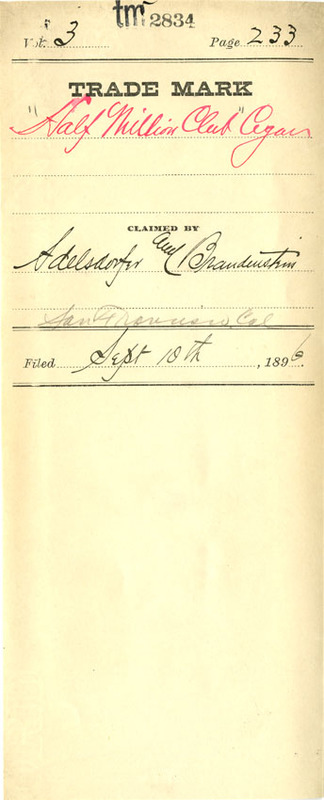 tm 2834
Vol. 3 Page 233
TRADE MARK
"Half Million Club" Cigars
CLAIMED BY
Adelsdorfer and Brandenstein
San Francisco Cal
Filed Sept 10th, 1896.